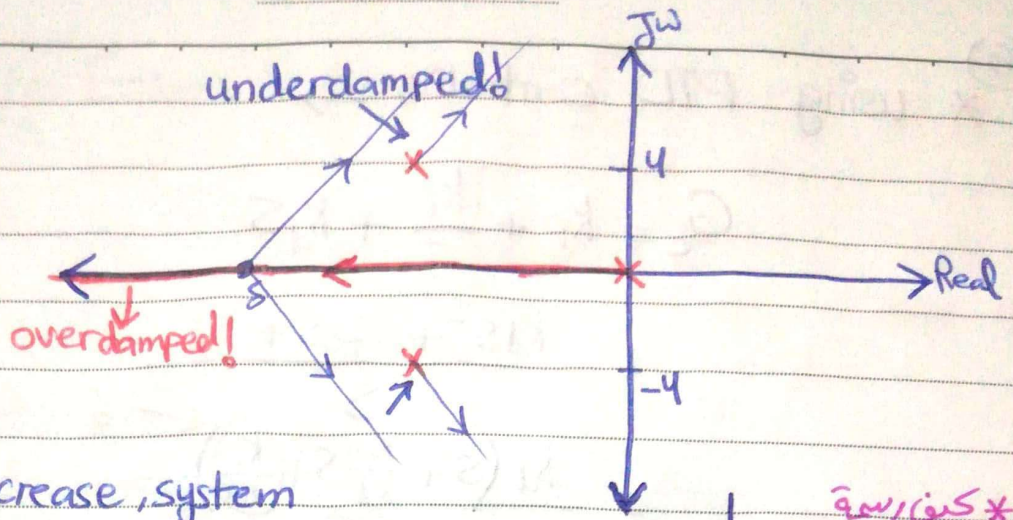 Jω
underdamped!
4
Real
δ
overdamped!
-4
crease, system